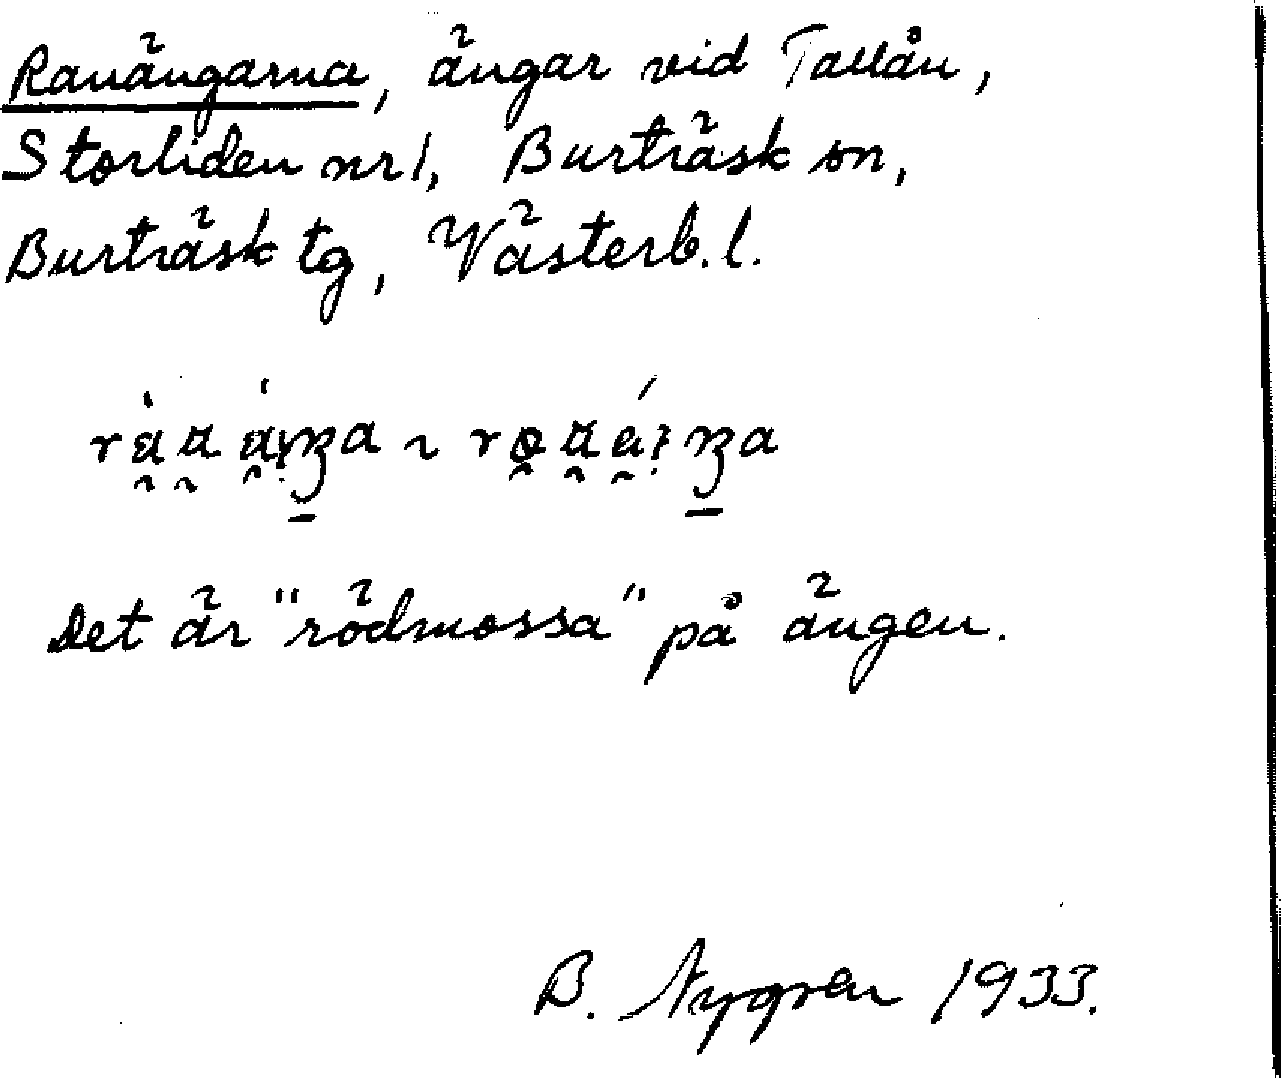 Ranängarna, ängar vid Tallån,
Storliden nr 1, Burträsk sn,
Burträsk tg, Västerb. l.
Det är "rödmossa" på ängen.
B. Nygren 1933.